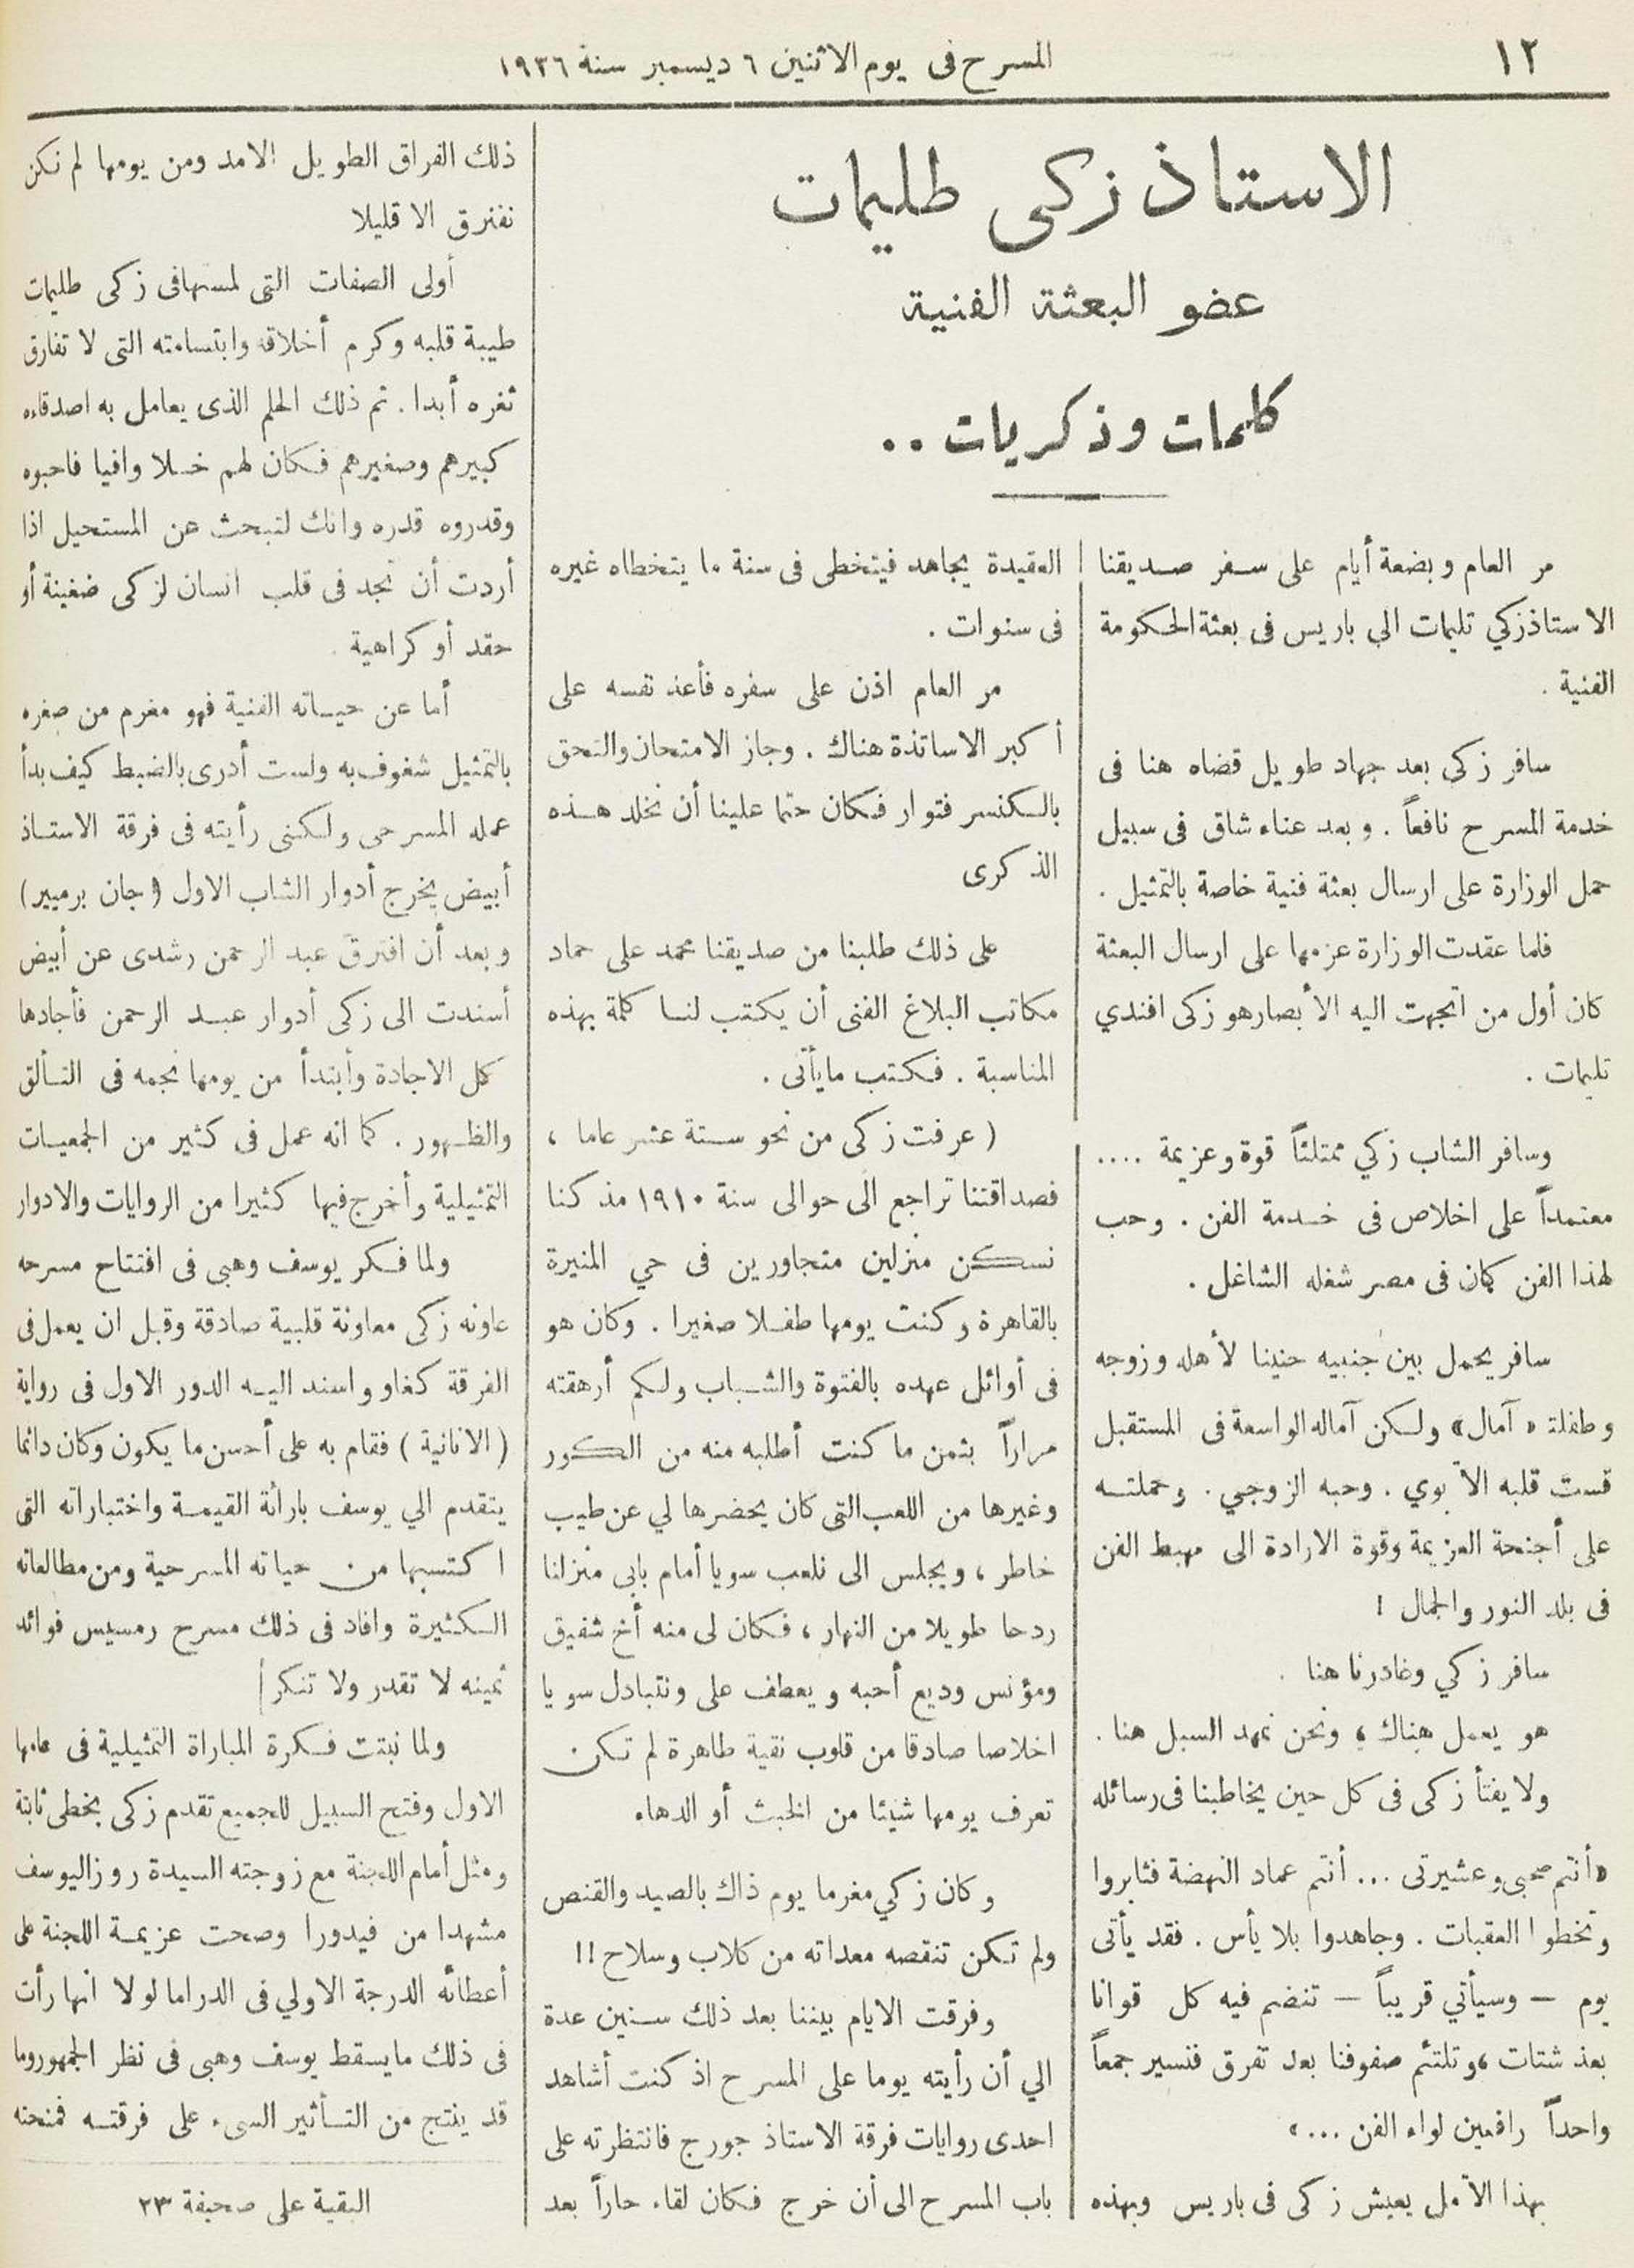 ١٢
المسرح فى يوم الاثنين ٦ ديسمبر سنة ١٩٢٦
الاستاذ زكى طليمات
عضو البعثة الفنية
كلمات وذكريات . .
مر العام وبضعة أيام على سفر صديقنا
الاستاذ زكي تليمات الي باريس فى بعثة الحكومة
الفنية .
سافر زكي بعد جهاد طويل قضاه هنا فى
خدمة المسرح نافعاً . وبعد عناء شاق فى سبيل
حمل الوزارة على ارسال بعثة فنية خاصة بالتمثيل .
فلما عقدت الوزارة عزمها على ارسال البعثة
كان أول من اتجهت اليه الأبصار هو زكى افندي
تليمات .
وسافر الشاب زكي ممتلئاً قوة وعزيمة ....
معتمداً على اخلاص فى خدمة الفن . وحب
لهذا الفن كان فى مصر شغله الشاغل .
سافر يحمل بين جنبيه حنينا لأهله وزوجه
وطفلته « آمال » ولكن آماله الواسعة فى المستقبل
قست قلبه الأبوي . وحبه الزوجي . وحملته
على أجنحة العزيمة وقوة الارادة الى مهبط الفن
فى بلد النور والجمال !
سافر زكي وغادرنا هنا .
هو يعمل هناك ، ونحن نمهد السبل هنا .
ولا يفتأ زكى فى كل حين يخاطبنا فى رسائله
« أنتم صحبى وعشيرتى ... أنتم عماد النهضة فثابروا
وتخطوا العقبات . وجاهدوا بلا يأس . فقد يأتى
يوم — وسيأتي قريباً — تنضم فيه كل قوانا
بعد شتات ، وتلتئم صفوفنا بعد تفرق فنسير جمعاً
واحداً رافعين لواء الفن ... »
بهذا الأمل يعيش زكى فى باريس وبهذه
العقيدة يجاهد فيتخطى فى سنة ما يتخطاه غيره
فى سنوات .
مر العام اذن على سفره فأعد نفسه على
أكبر الاساتذة هناك . وجاز الامتحان والتحق
بالكنسرفتوار فكان حتما علينا أن نخلد هذه
الذكرى
على ذلك طلبنا من صديقنا محمد على حماد
مكاتب البلاغ الفنى أن يكتب لنا كلمة بهذه
المناسبة . فكتب ما يأتى .
( عرفت زكى من نحو ستة عشر عاما ،
فصداقتنا تراجع الى حوالى سنة ١٩١٠ مذ كنا
نسكن منزلين متجاورين فى حي المنيرة
بالقاهرة وكنت يومها طفلا صغيرا . وكان هو
فى أوائل عهده بالفتوة والشباب ولكم أرهقته
مراراً بثمن ما كنت أطلبه منه من الكور
وغيرها من اللعب التى كان يحضرها لي عن طيب
خاطر ، ويجلس الى نلعب سويا أمام بابى منزلنا
ردحا طويلا من النهار ، فكان لى منه أخ شفيق
ومؤنس وديع أحبه ويعطف على ونتبادل سويا
اخلاصا صادقا من قلوب نقية طاهرة لم تكن
تعرف يومها شيئا من الخبث أو الدهاء
وكان زكي مغرما يوم ذاك بالصيد والقنص
ولم تكن تنقصه معداته من كلاب وسلاح !!
وفرقت الايام بيننا بعد ذلك سنين عدة
الي أن رأيته يوما على المسرح اذ كنت أشاهد
احدى روايات فرقة الاستاذ جورج فانتظرته على
باب المسرح الى أن خرج فكان لقاء حاراً بعد
ذلك الفراق الطويل الامد ومن يومها لم نكن
نفترق الا قليلا
أولى الصفات التى لمستها فى زكى طليمات
طيبة قلبه وكرم أخلاقه وابتسامته التى لا تفارق
ثغره أبدا . ثم ذلك الحلم الذى يعامل به اصدقاءه
كبيرهم وصغيرهم فكان لهم خلا وافيا فاحبوه
وقدروه قدره وانك لتبحث عن المستحيل اذا
أردت أن تجد فى قلب انسان لزكى ضغينة أو
حقد أو كراهية .
أما عن حياته الفنية فهو مغرم من صغره
بالتمثيل شغوف به ولست أدرى بالضبط كيف بدأ
عمله المسرحى ولكنى رأيته فى فرقة الاستاذ
أبيض يخرج أدوار الشاب الاول ( جان برميير )
وبعد أن افترق عبد الرحمن رشدى عن أبيض
أسندت الى زكى أدوار عبد الرحمن فأجادها
كل الاجادة وأبتدأ من يومها نجمه فى التألق
والظهور . كما انه عمل فى كثير من الجمعيات
التمثيلية وأخرج فيها كثيرا من الروايات والادوار
ولما فكر يوسف وهبى فى افتتاح مسرحه
عاونه زكى معاونة قلبية صادقة وقبل ان يعمل فى
الفرقة كغاو واسند اليه الدور الاول فى رواية
( الانانية ) فقام به على أحسن ما يكون وكان دائما
يتقدم الي يوسف بارائه القيمة واختباراته التى
اكتسبها من حياته المسرحية ومن مطالعاته
الكثيرة وافاد فى ذلك مسرح رمسيس فوائد
ثمينه لا تقدر ولا تنكر
ولما نبتت فكرة المباراة التمثيلية فى عامها
الاول وفتح السبيل للجميع تقدم زكى بخطى ثابتة
ومثل أمام اللجنة مع زوجته السيدة روز اليوسف
مشهدا من فيدورا وصحت عزيمة اللجنة على
أعطائه الدرجة الاولي فى الدراما لولا انها رأت
فى ذلك ما يسقط يوسف وهبى فى نظر الجمهور وما
قد ينتج من التأثير السىء على فرقته فمنحته
البقية على صحيفة ٢٣